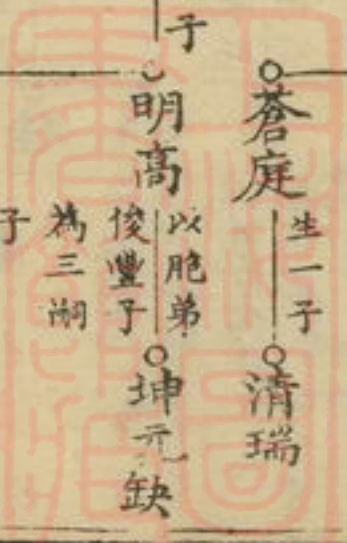 子
蒼庭
生一子
清瑞
明高
以胞弟
俊豐子
為三嗣
子
坤元缺